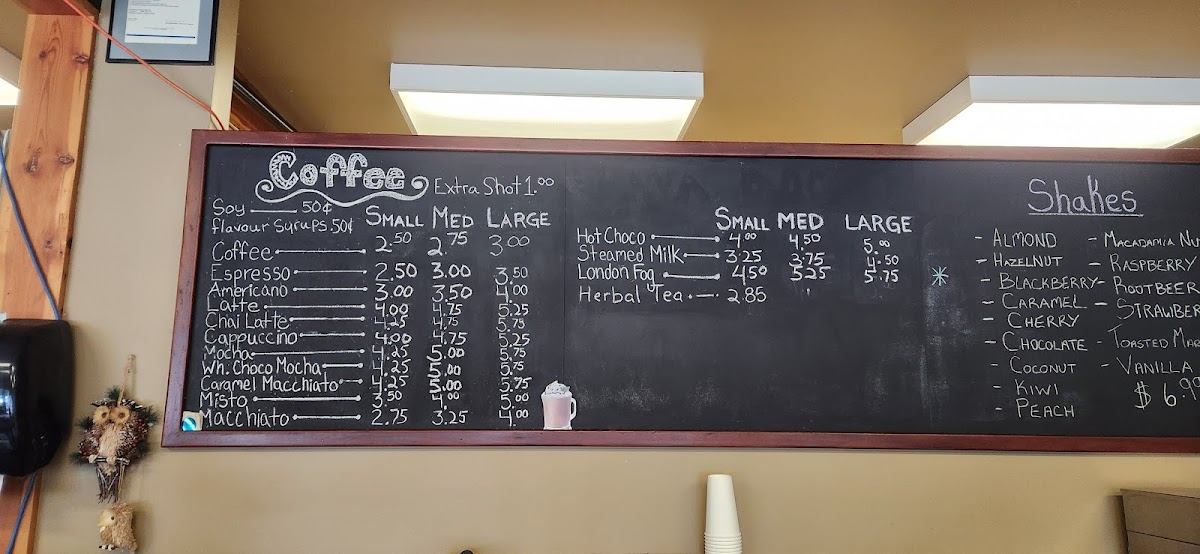 Coffee Extra Shot 1.00
Soy 50¢
flavour syrups 50¢
SMALL MED LARGE
Coffee 2.50 2.75 3.00
Espresso 2.50 3.00 3.50
Americano 3.00 3.50 4.00
Latte 4.00 4.75 5.25
Chai Latte 4.25 4.75 5.75
Cappuccino 4.00 4.75 5.25
Mocha 4.25 5.00 5.75
Wh. Choco Mocha 4.25 5.00 5.75
Caramel Macchiato 4.25 5.00 5.75
Misto 3.50 4.00 5.00
Macchiato 2.75 3.25 4.00
SMALL MED LARGE
Hot Choco 4.00 4.50 5.00
Steamed Milk 3.25 3.75 4.50
London Fog 4.50 5.25 5.75
Herbal Tea 2.85
Shakes
- ALMOND - MACADAMIA
- HAZELNUT - RASPBERRY
- BLACKBERRY - ROOTBEER
- CARAMEL
- CHERRY
- CHOCOLATE - TOASTED
- COCONUT - VANILLA
- KIWI $6.99
- PEACH